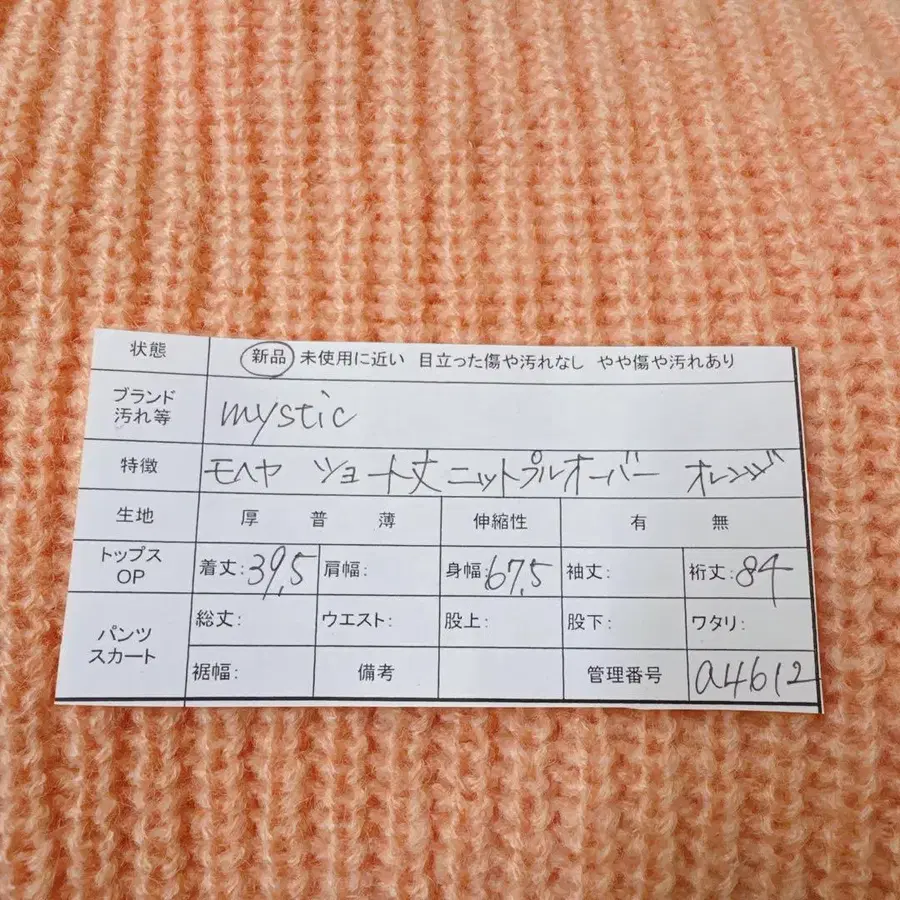 状態 新品 未使用に近い 目立った傷や汚れなし やや傷や汚れあり
ブランド
汚れ等 mystic
特徴 モヘヤ ショート丈ニットプルオーバー オレンジ
生地 厚 普 薄 伸縮性 有 無
トップス
OP 着丈:39,5 肩幅: 身幅:67,5 袖丈: 裄丈:84
パンツ
スカート 総丈: ウエスト: 股上: 股下: ワタリ:
裾幅: 備考 管理番号 a4612